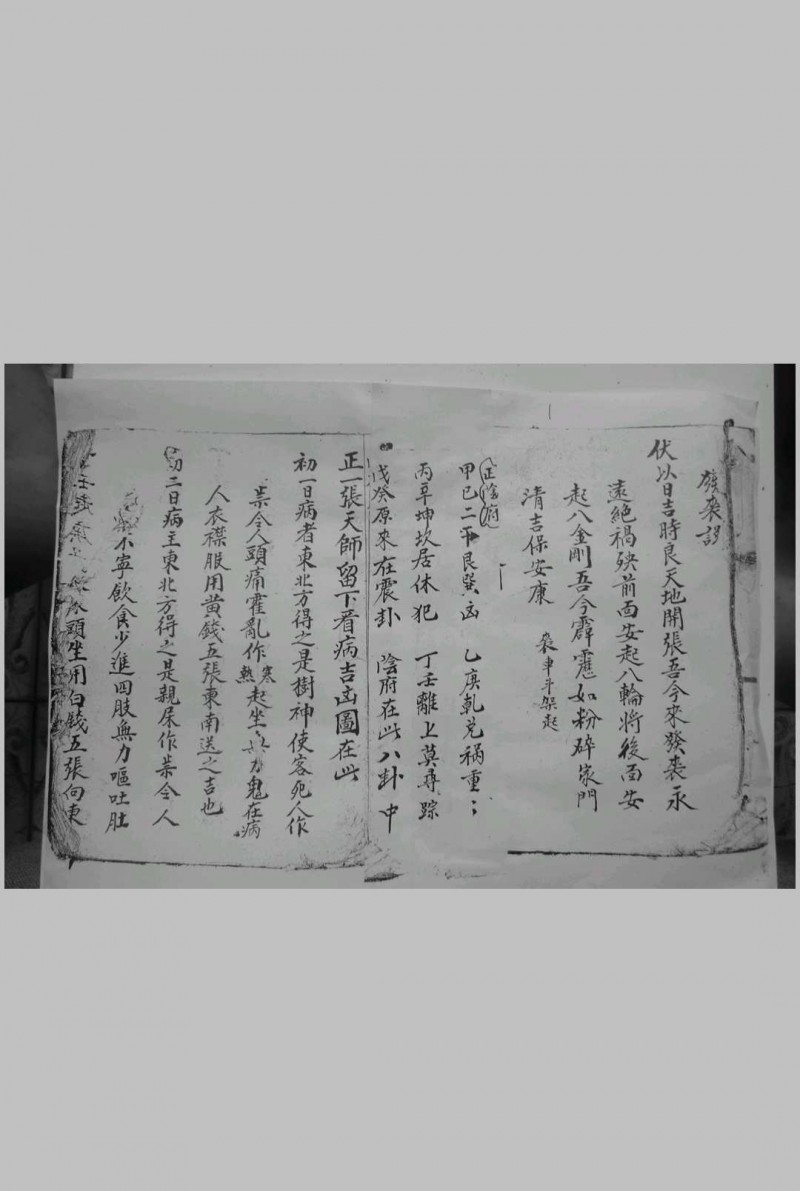 伏以日吉時良天地開張吾今來發喪永
遠絕禍殃前面安起八輪將後面安
起八金剛吾今霹靂如粉碎家門
清吉保安康
正陰府
甲己二干艮巽凶 乙庚乾兌禍重重
丙辛坤坎居休犯 丁壬離上莫尋踪
戊癸原來在震卦 陰府在此八卦中
正一張天師留下看病吉凶圖在此
初一日病者東北方得之是樹神使客死人作
祟令人頭痛霍亂作寒熱起坐無力鬼在病
人衣襟服用黄錢五張東南送之吉也
初二日病主東北方得之是親屎作祟令人
不寧飲食少進四肢無力嘔吐肚
頭坐用白錢五張向東